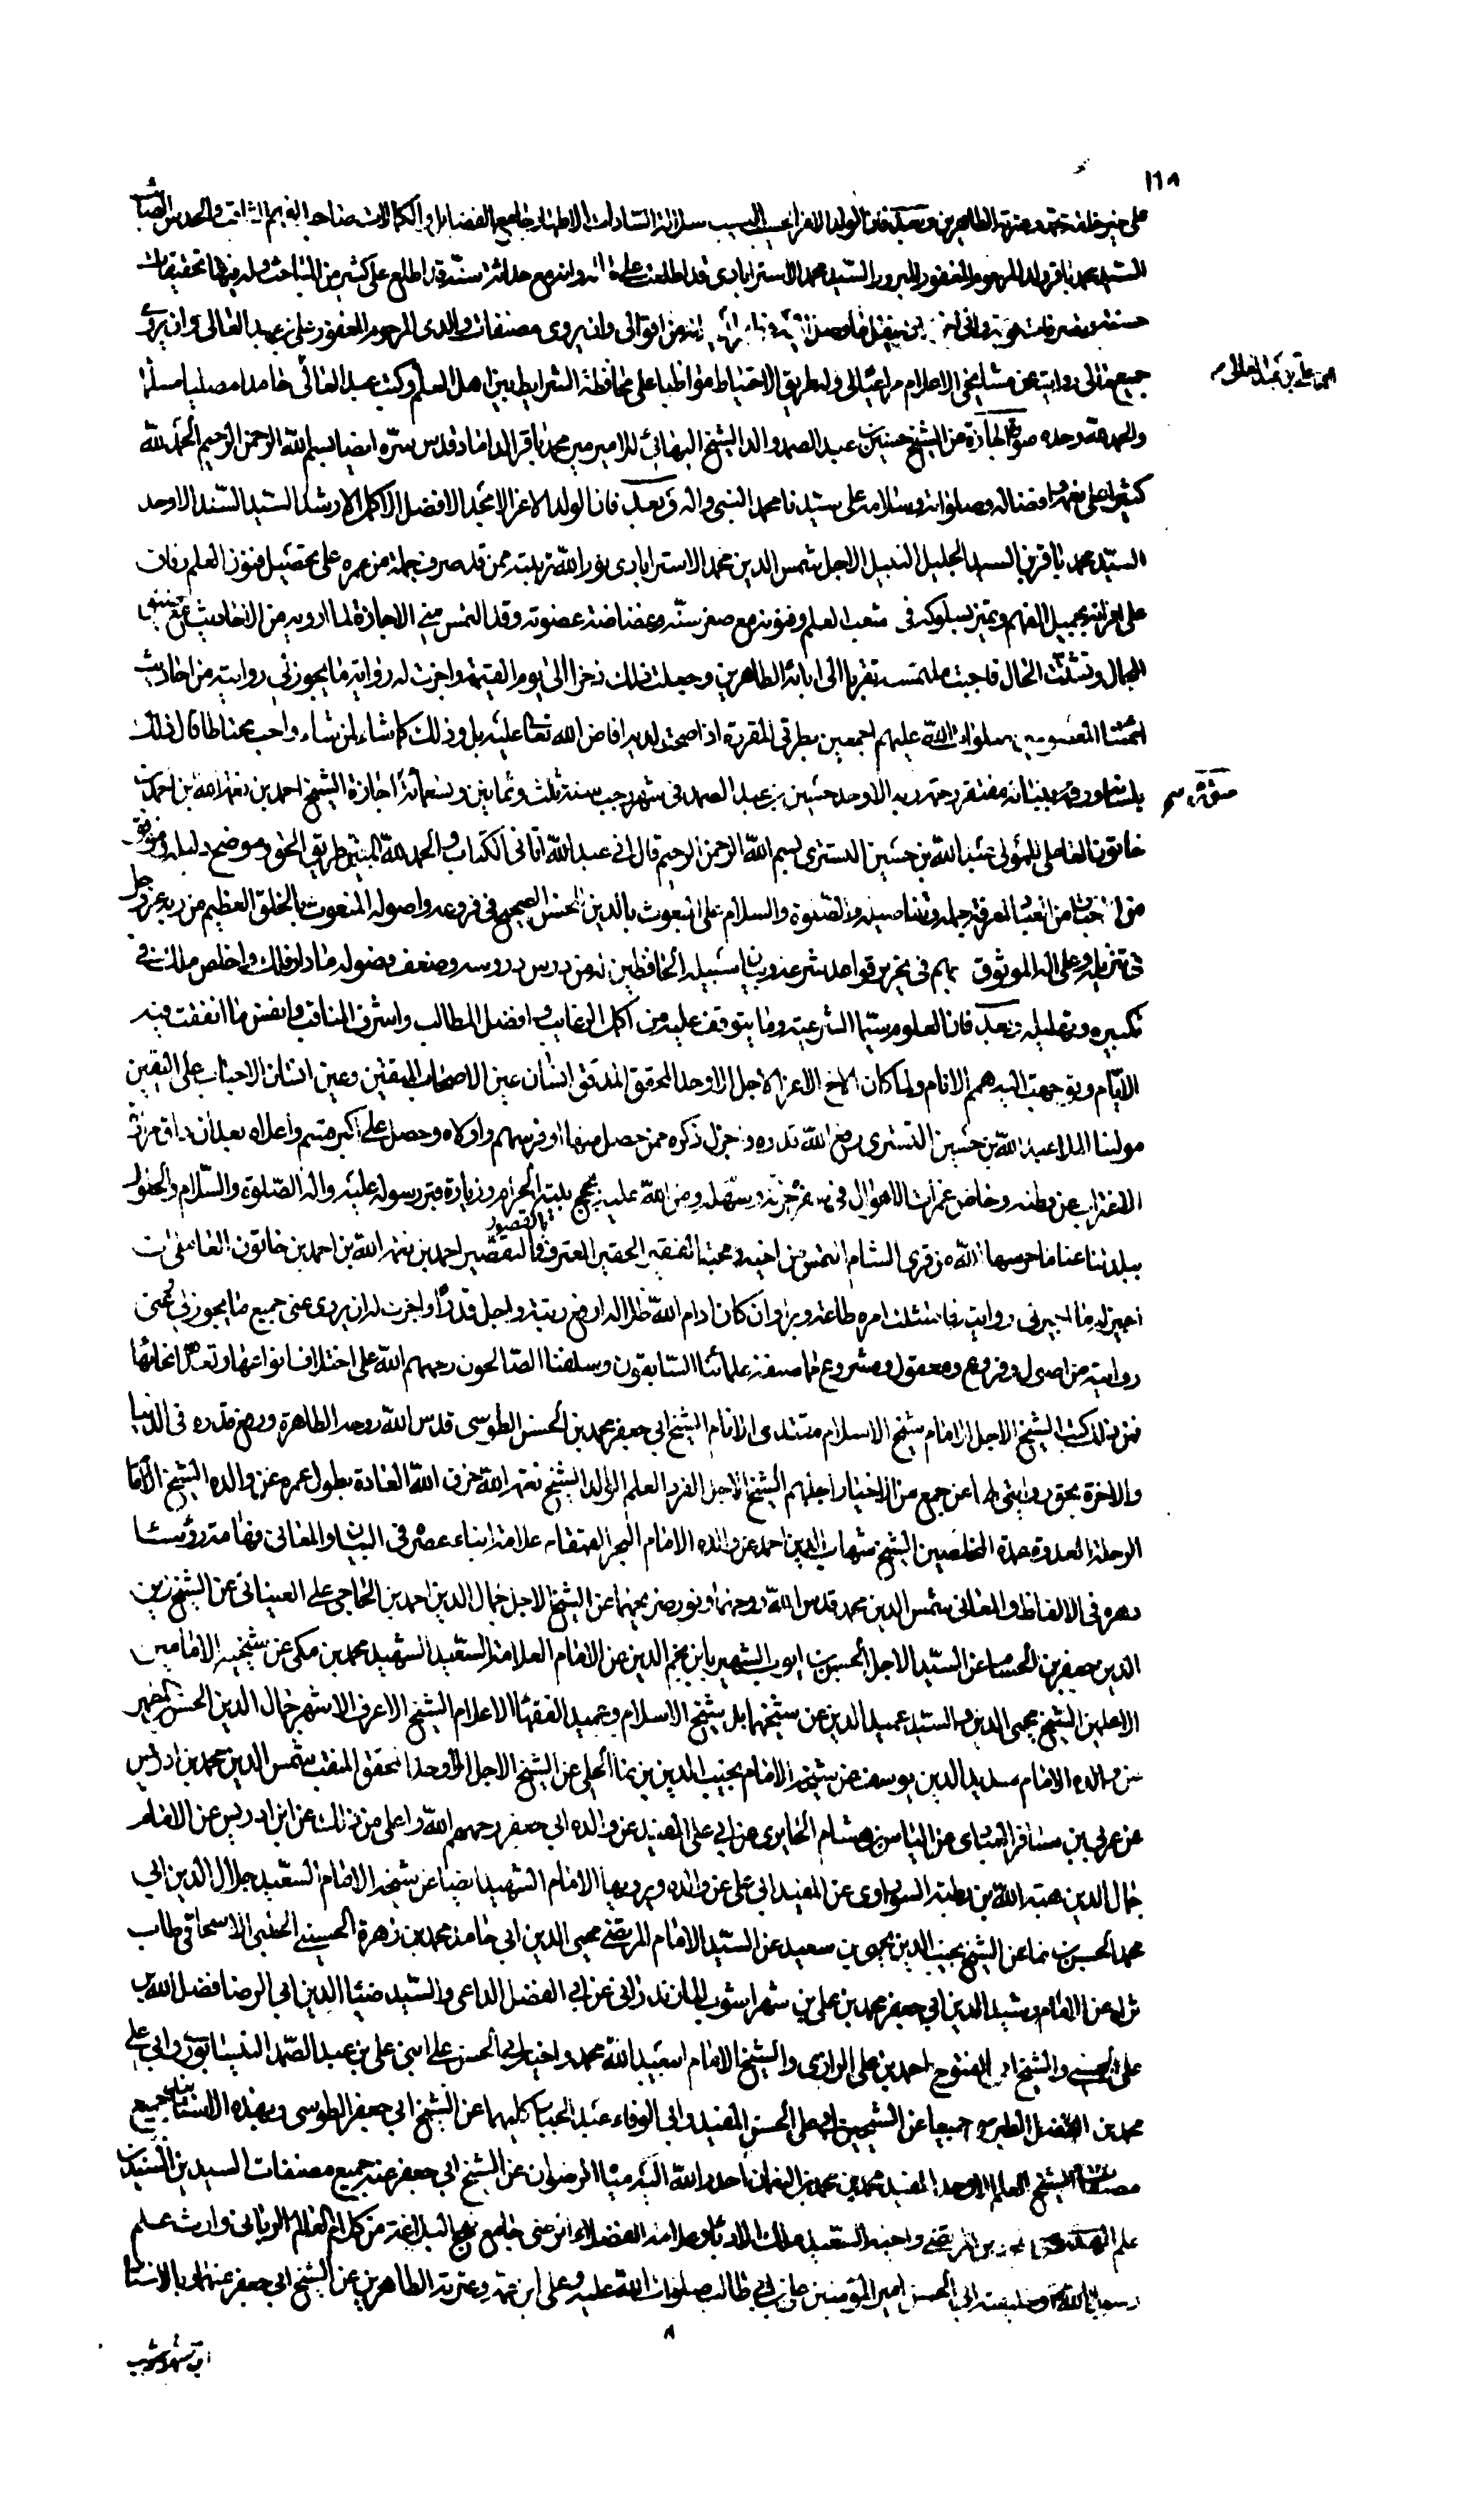 ١٦٨
على خير خلقه محمد وعترته الطاهرين وبعد فان الولد الاعز الحسيب النسيب سلالة السادات الاطهار جامع الفضايل والكمالات صاحب الفهم الثاقب والحدس الصائب
السيد محمد باقر ولد المرحوم المغفور المبرور السيد محمد الاسترابادى قد اطلعت عليه وانه مع حداثة سنه قد اطلع على كثير من المباحث وله فيها تحقيقات
حسنة وتصرفات من اقوالى وان يروى مصنفات والدى المرحوم المغفور على بن عبد العالى وان يروى
جميع مالى روايته عن مشايخى الاعلام مراعيا لى وله طريق الاحتياط مواظبا على محافظة الشرايط بين اهل العلم وكتب عبد العالى حامدا مصليا مسلما
المحقق على بن عبد العالى
والحمد لله وحده صورة اجازة من الشيخ حسين بن عبد الصمد والد الشيخ البهائى للامير مير محمد باقر الداماد قدس سره ايضا بسم الله الرحمن الرحيم الحمد لله
كثيرا على نعمه وافضاله وصلواته وسلامه على سيدنا محمد النبى واله وبعد فان الولد الاعز الامجد الافضل الاكمل الارشد السيد السند الاوحد
السيد محمد باقر بن السيد الجليل النبيل الاجل شمس الدين محمد الاسترابادى نور الله تربته ممن قد صرف جملة من عمره على تحصيل فنون العلم وفاق
على اقرانه بجميل الفهم وتميز بسلوكه فى شعب العلم وفنونه مع صغر سنه وغضاضة غصونه وقد التمس منى الاجازة لما ارويه من الاحاديث مع ضيق
المجال وتشتت الحال فاجبت ملتمسه تقربا الى ابائه الطاهرين وجعلت ذلك ذخرا الى يوم القيمة واجزت له رواية ما يجوز لى روايته من احاديث
ائمتنا المعصومين صلوات الله عليهم اجمعين بطرقى المقررة اذا صحت لديه افاض الله تعالى عليه بل وذلك كما شاء لمن شاء واحب محتاطا قال ذلك
بلسانه ورقمه ببنانه مفتقر رحمة ربه الاوحد حسين بن عبد الصمد فى شهر رجب سنة ثلث وثمانين وتسعمائة اجازة الشيخ احمد بن نعمة الله بن احمد بن
خاتون العاملى للمولى عبد الله بن حسين التسترى بسم الله الرحمن الرحيم قال انى عبد الله اتانى الكتاب والحمد لله المبين طريق الحق وموضح دليله وموفق
من احب من اتعب لمعرفة جمله وتفاصيله والصلوة والسلام على المبعوث بالدين الحسن الصحيح فى فروعه واصوله المنعوت بالخلق العظيم من ربه عز وجل
فى تنزيله وعلى اله الموثوق بهم فى تحرير قواعد شرعه وبيان سبيله الحافظين له من درس دروسه وضعف فصوله ما دار فلك واخلص ملك فى
تكبيره وتهليله وبعد فان العلوم سيما الشرعية وما يتوقف عليه من اكمل الرغايب وافضل المطالب واشرف المناقب وانفس ما انفقت فيه
الايام وتوجهت اليه همم الانام ولما كان الاخ الاعز الاجل الاوحد المحقق المدقق انسان عين الاصحاب المتقين وعين انسان الاحباب على اليقين
مولينا الملا عبد الله بن حسين التسترى رفع الله قدره واجزل ذكره ممن حصل منها اوفر سهم واوكاه وحصل على اكبر متسم واعلاه بعد ان ذاق مرارة
الاغتراب عن وطنه وخاض غمرات الاهوال فى سفره حزنه وسهله ومن الله عليه بحج بيته الحرام وزيارة قبر رسوله عليه واله الصلوة والسلام والحلول
ببلدتنا عيناثا حرسها الله من قرى الشام التمس من اخيه ومحبه الفقير الحقير المعترف بالقصور والتقصير احمد بن نعمة الله بن احمد بن خاتون العاملى ان
اجيز له ما اجيز لى روايته فامتثلت امره طاعة وبرا وان كان ادام الله ظلاله ارفع رتبة واجل قدرا واجزت له ان يروى عنى جميع ما يجوز لى وعنى
روايته من اصول وفروع ومعقول ومشروع مما صنفه علمائنا السابقون وسلفنا الصالحون رحمهم الله على اختلاف انواعها وتعدد انحائها
فمن ذلك كتب الشيخ الاجل الامام شيخ الاسلام مقتدى الانام الشيخ ابى جعفر محمد بن الحسن الطوسى قدس الله روحه الطاهرة ورفع قدره فى الدنيا
والاخرة بحق روايتى لها عن جمع من الاخيار اجلهم الشيخ الاجل الفرد العلم الوالد الشيخ نعمة الله خرق الله العادة بطول عمره عن والده الشيخ الامام
الرحلة القدوة عمدة المخلصين الشيخ شهاب الدين احمد عن والده الامام البحر القمقام علامة ابناء عصره فى البيان والمعانى وفهامة رؤساء
دهره فى الالفاظ والمعانى شمس الدين محمد قدس الله روحهما ونور ضريحهما عن الشيخ الاجل جمال الدين احمد بن الحاجى على العيناثى عن الشيخ زين
الدين جعفر بن الحسام عن السيد الاجل الحسن بن ايوب الشهير بابن نجم الدين عن الامام العلامة السعيد الشهيد محمد بن مكى عن شيخيه الامامين
الاعلمين الشيخ محيى الدين والسيد عميد الدين عن شيخهما بل شيخ الاسلام وعميد الفقهاء الاعلام الشيخ الاعرف الاشهر جمال الدين الحسن بن المطهر
عن والده الامام سديد الدين يوسف عن شيخه الامام نجيب الدين بن نما الحلى عن الشيخ الاجل الاوحد المحقق المنقب شمس الدين محمد بن ادريس
عن عربى بن مسافر العبادى عن الياس بن هشام الحايرى عن ابى على المفيد عن والده ابى جعفر رحمهم الله واعلى من ذلك عن ابن ادريس عن الامام
جمال الدين هبة الله بن رطبة السوراوى عن المفيد ابى على عن والده ويرويها الامام الشهيد ايضا عن شيخه الامام السعيد جلال الدين ابى
محمد الحسن بن نما عن الشيخ نجيب الدين يحيى بن سعيد عن السيد الامام المرتضى محيى الدين ابى حامد محمد بن زهرة الحسينى الحلبى الاسحاقى طاب
ثراه عن الامام رشيد الدين ابى جعفر محمد بن على بن شهراشوب المازندرانى عن ابى الفضل الداعى والسيد ضياء الدين ابى الرضا فضل الله بن
على الحسنى والشيخ ابى الفتوح احمد بن على الرازى والشيخ الامام ابى عبد الله محمد واخيه ابى الحسن على ابنى على بن عبد الصمد النيسابورى وابى على
محمد بن الفضل الطبرسى جميعا عن الشيخين ابى على الحسن المفيد وابى الوفاء عبد الجبار كليهما عن الشيخ ابى جعفر الطوسى وبهذه الاسانيد جميع
مصنفات الشيخ العالم الاوحد المفيد محمد بن محمد بن النعمان اهدى الله اليه هدايا الرضوان عن الشيخ ابى جعفر عنه جميع مصنفات السيدين السندين
علم الهدى المرتضى واخيه السعيد ملك الادباء وعلامة الفضلاء الرضى جامع نهج البلاغة من كلام العالم الربانى وارث علم
رسول الله وخليفته ابى الحسن امير المؤمنين على بن ابى طالب صلوات الله عليه وعلى ابن عمه وعترته الطاهرين عن الشيخ ابى جعفر عنهما وبالاسناد
٨
ابن شهراشوب